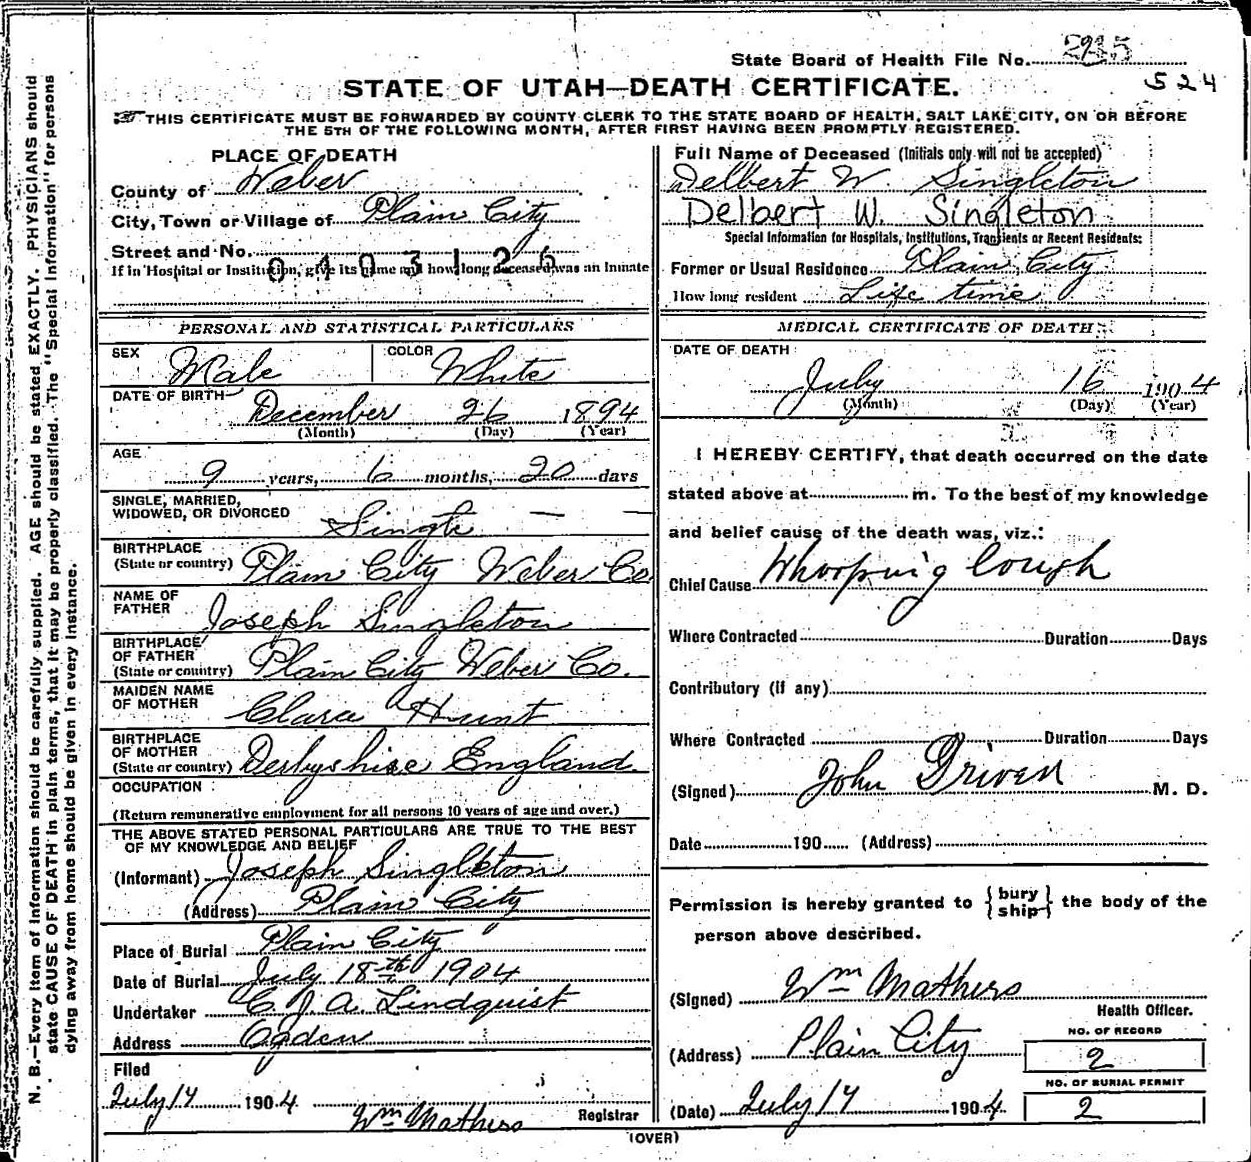 State Board of Health File No.
524
STATE OF UTAH—DEATH CERTIFICATE.
THIS CERTIFICATE MUST BE FORWARDED BY COUNTY CLERK TO THE STATE BOARD OF HEALTH, SALT LAKE CITY, ON OR BEFORE
THE 5TH OF THE FOLLOWING MONTH, AFTER FIRST HAVING BEEN PROMPTLY REGISTERED.
N. B.—Every item of information should be carefully supplied. AGE should be stated EXACTLY. PHYSICIANS should
state CAUSE OF DEATH in plain terms, that it may be properly classified. The "Special Information" for persons
dying away from home should be given in every instance.
PLACE OF DEATH
County of Weber
City, Town or Village of Plain City
Street and No.
If in Hospital or Institution, give its name and how long deceased was an Inmate
0403126
PERSONAL AND STATISTICAL PARTICULARS
SEX Male COLOR White
DATE OF BIRTH
December 26 1894
(Month) (Day) (Year)
AGE
9 years, 6 months, 20 days
SINGLE, MARRIED,
WIDOWED, OR DIVORCED Single — —
BIRTHPLACE
(State or country) Plain City Weber Co
NAME OF
FATHER Joseph Singleton
BIRTHPLACE
OF FATHER
(State or country) Plain City Weber Co.
MAIDEN NAME
OF MOTHER Clara Hunt
BIRTHPLACE
OF MOTHER
(State or country) Derbyshire England.
OCCUPATION
(Return remunerative employment for all persons 10 years of age and over.)
THE ABOVE STATED PERSONAL PARTICULARS ARE TRUE TO THE BEST
OF MY KNOWLEDGE AND BELIEF
(Informant) Joseph Singleton
(Address) Plain City
Place of Burial Plain City
Date of Burial July 18th 1904
Undertaker C. J. A. Lindquist
Address Ogden
Filed
July 17 1904
Wm Mathers Registrar
Full Name of Deceased (Initials only will not be accepted)
Delbert W. Singleton
Delbert W. Singleton
Special Information for Hospitals, Institutions, Transients or Recent Residents:
Former or Usual Residence Plain City
How long resident Life time
MEDICAL CERTIFICATE OF DEATH
DATE OF DEATH
July 16 1904
(Month) (Day) (Year)
I HEREBY CERTIFY, that death occurred on the date
stated above at m. To the best of my knowledge
and belief cause of the death was, viz.:
Chief Cause Whooping Cough
Where Contracted Duration Days
Contributory (if any)
Where Contracted Duration Days
(Signed) John Driven M. D.
Date 190 (Address)
Permission is hereby granted to { bury
ship } the body of the
person above described.
(Signed) Wm Mathers
Health Officer.
(Address) Plain City
NO. OF RECORD
2
NO. OF BURIAL PERMIT
2
(Date) July 17 1904
(OVER)